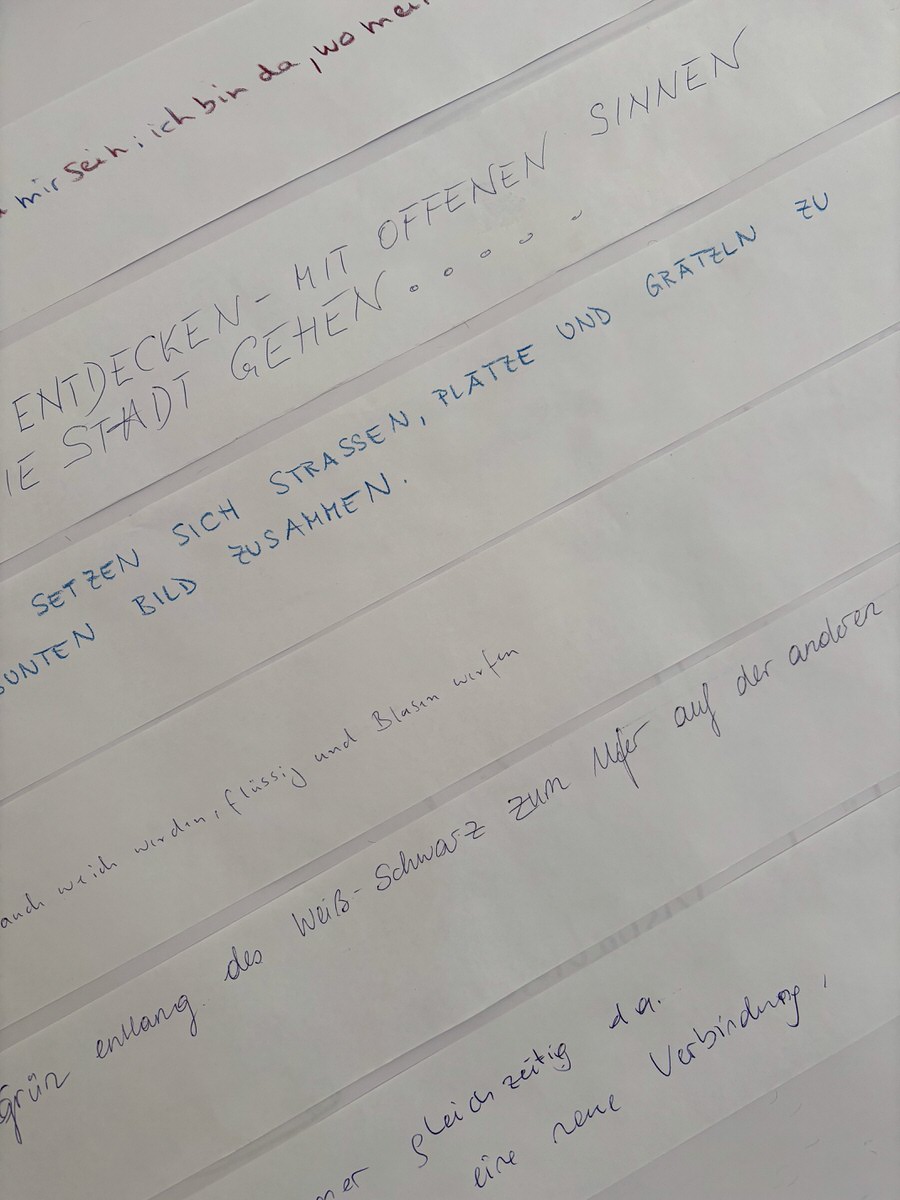 mir sein; ich bin da, wo mei
ENTDECKEN - MIT OFFENEN SINNEN
IE STADT GEHEN......
SETZEN SICH STRASSEN, PLÄTZE UND GRÄTZLN ZU
BUNTEN BILD ZUSAMMEN.
auch weich werden, flüssig und Blasen werfen
Grün entlang des Weiß-Schwarz zum Ufer auf der anderen
mer gleichzeitig da.
eine neue Verbindung,